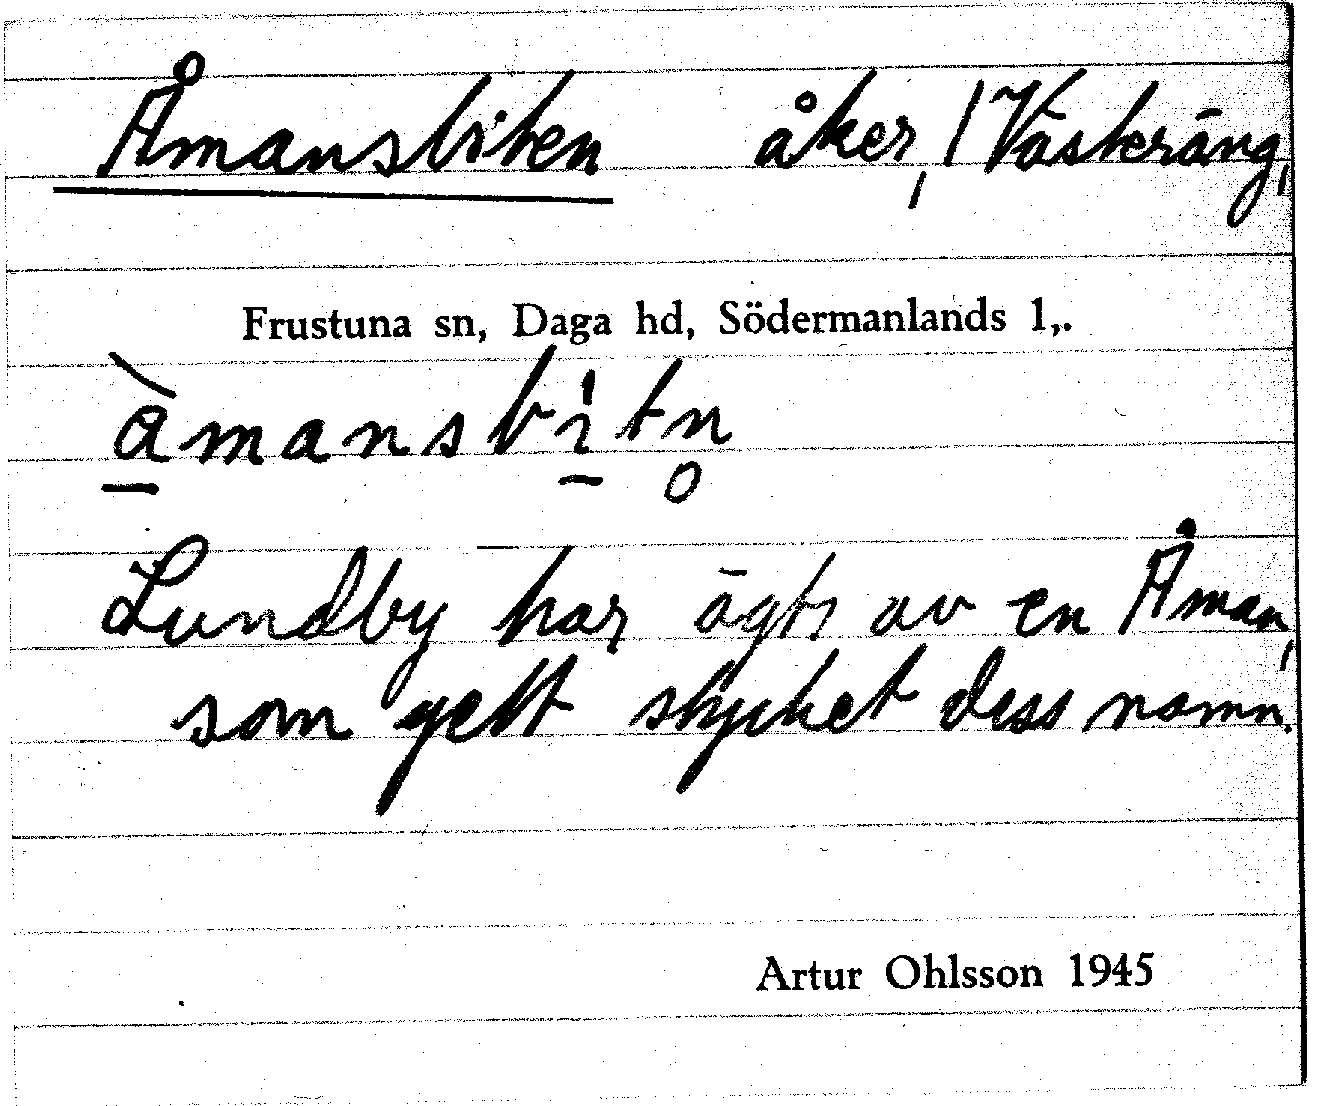 Åmansbiten åker, / Västeräng,
Frustuna sn, Daga hd, Södermanlands l,.
àmansbìtn̥
Lundby har ägts av en Åman,
som gett stycket dess namn.
Artur Ohlsson 1945